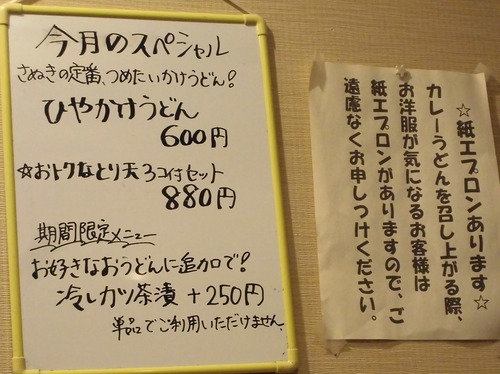 今月のスペシャル
さぬきの定番、つめたいかけうどん!
ひやかけうどん
600円
☆おトクなとり天3コ付セット
880円
期間限定メニュー
お好きなおうどんに追加で!
冷しカツ茶漬 +250円
単品でご利用いただけません。
☆紙エプロンあります☆
カレーうどんを召し上がる際、
お洋服が気になるお客様は
紙エプロンがありますので、ご
遠慮なくお申しつけください。